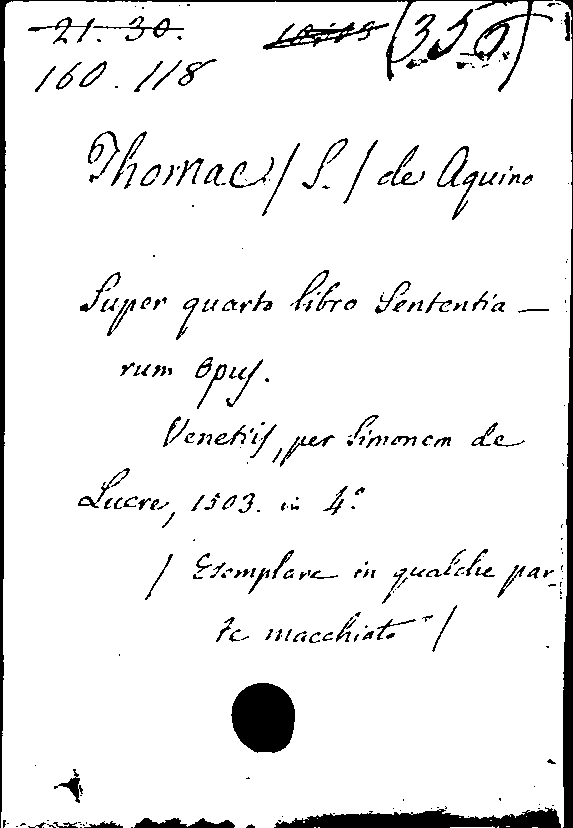 21. 30.
(350)
160. 118
Thomae / S. / de Aquino
Super quarto libro Sententia –
rum opus.
Venetiis, per Simonem de
Luere, 1503. in 4.º
/ Esemplare in qualche par-
te macchiato /